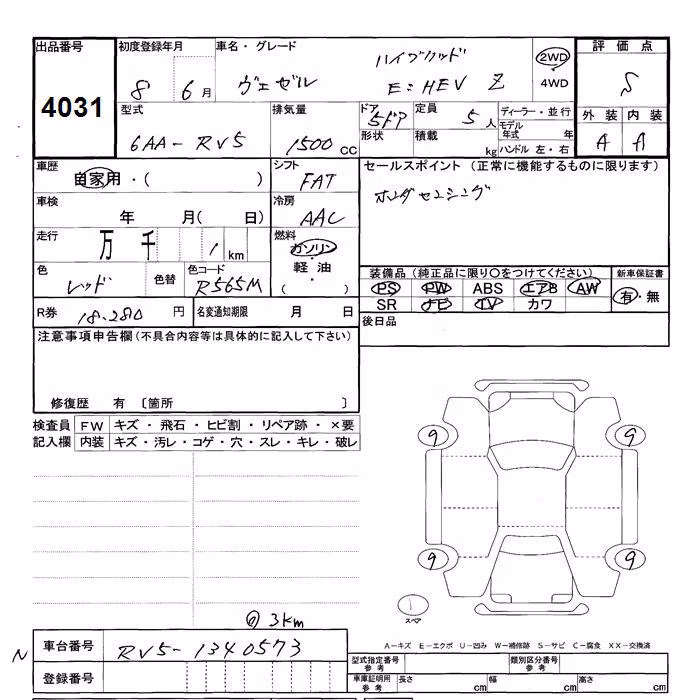 出品番号 初度登録年月 車名・グレード 評価点
4031 8 6月 ヴェゼル ハイブリッド e:HEV Z 2WD 4WD S
型式 排気量 ドア 定員 ディーラー・並行 外装 内装
6AA-RV5 1500cc 5ドア 5人 モデル年式 年 A A
形状 積載 kg ハンドル 左・右
車歴 シフト セールスポイント (正常に機能するものに限ります)
自家用・( ) FAT ホンダセンシング
車検 冷房
年 月( 日) AAC
走行 燃料
万 千 1 km ガソリン
色 色替 色コード 軽油 装備品 (純正品に限り○をつけてください) 新車保証書
レッド R565M ( ) PS PW ABS エアB AW 有・無
SR ナビ TV カワ
R券 18.280 円 名変通知期限 月 日 後日品
注意事項申告欄 (不具合内容等は具体的に記入して下さい)
修復歴 有 〔箇所 〕
検査員 FW キズ・飛石・ヒビ割・リペア跡・×要
記入欄 内装 キズ・汚レ・コゲ・穴・スレ・キレ・破レ
9 9
9 9
1
スペア
3km
A-キズ E-エクボ U-凹み W-補修跡 S-サビ C-腐食 XX-交換済
N 車台番号 RV5-1340573
型式指定番号 参考 類別区分番号 参考
登録番号 車庫証明用 参考 長さ cm 幅 cm 高さ cm